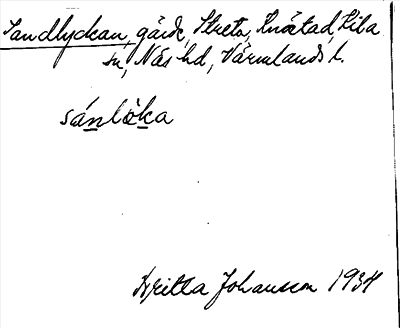 Sandlyckan, gärde, Streto, Knöstad, Kila
sn, Näs hd, Värmlands l.
sánlö̀ka
Britta Johansson 1934